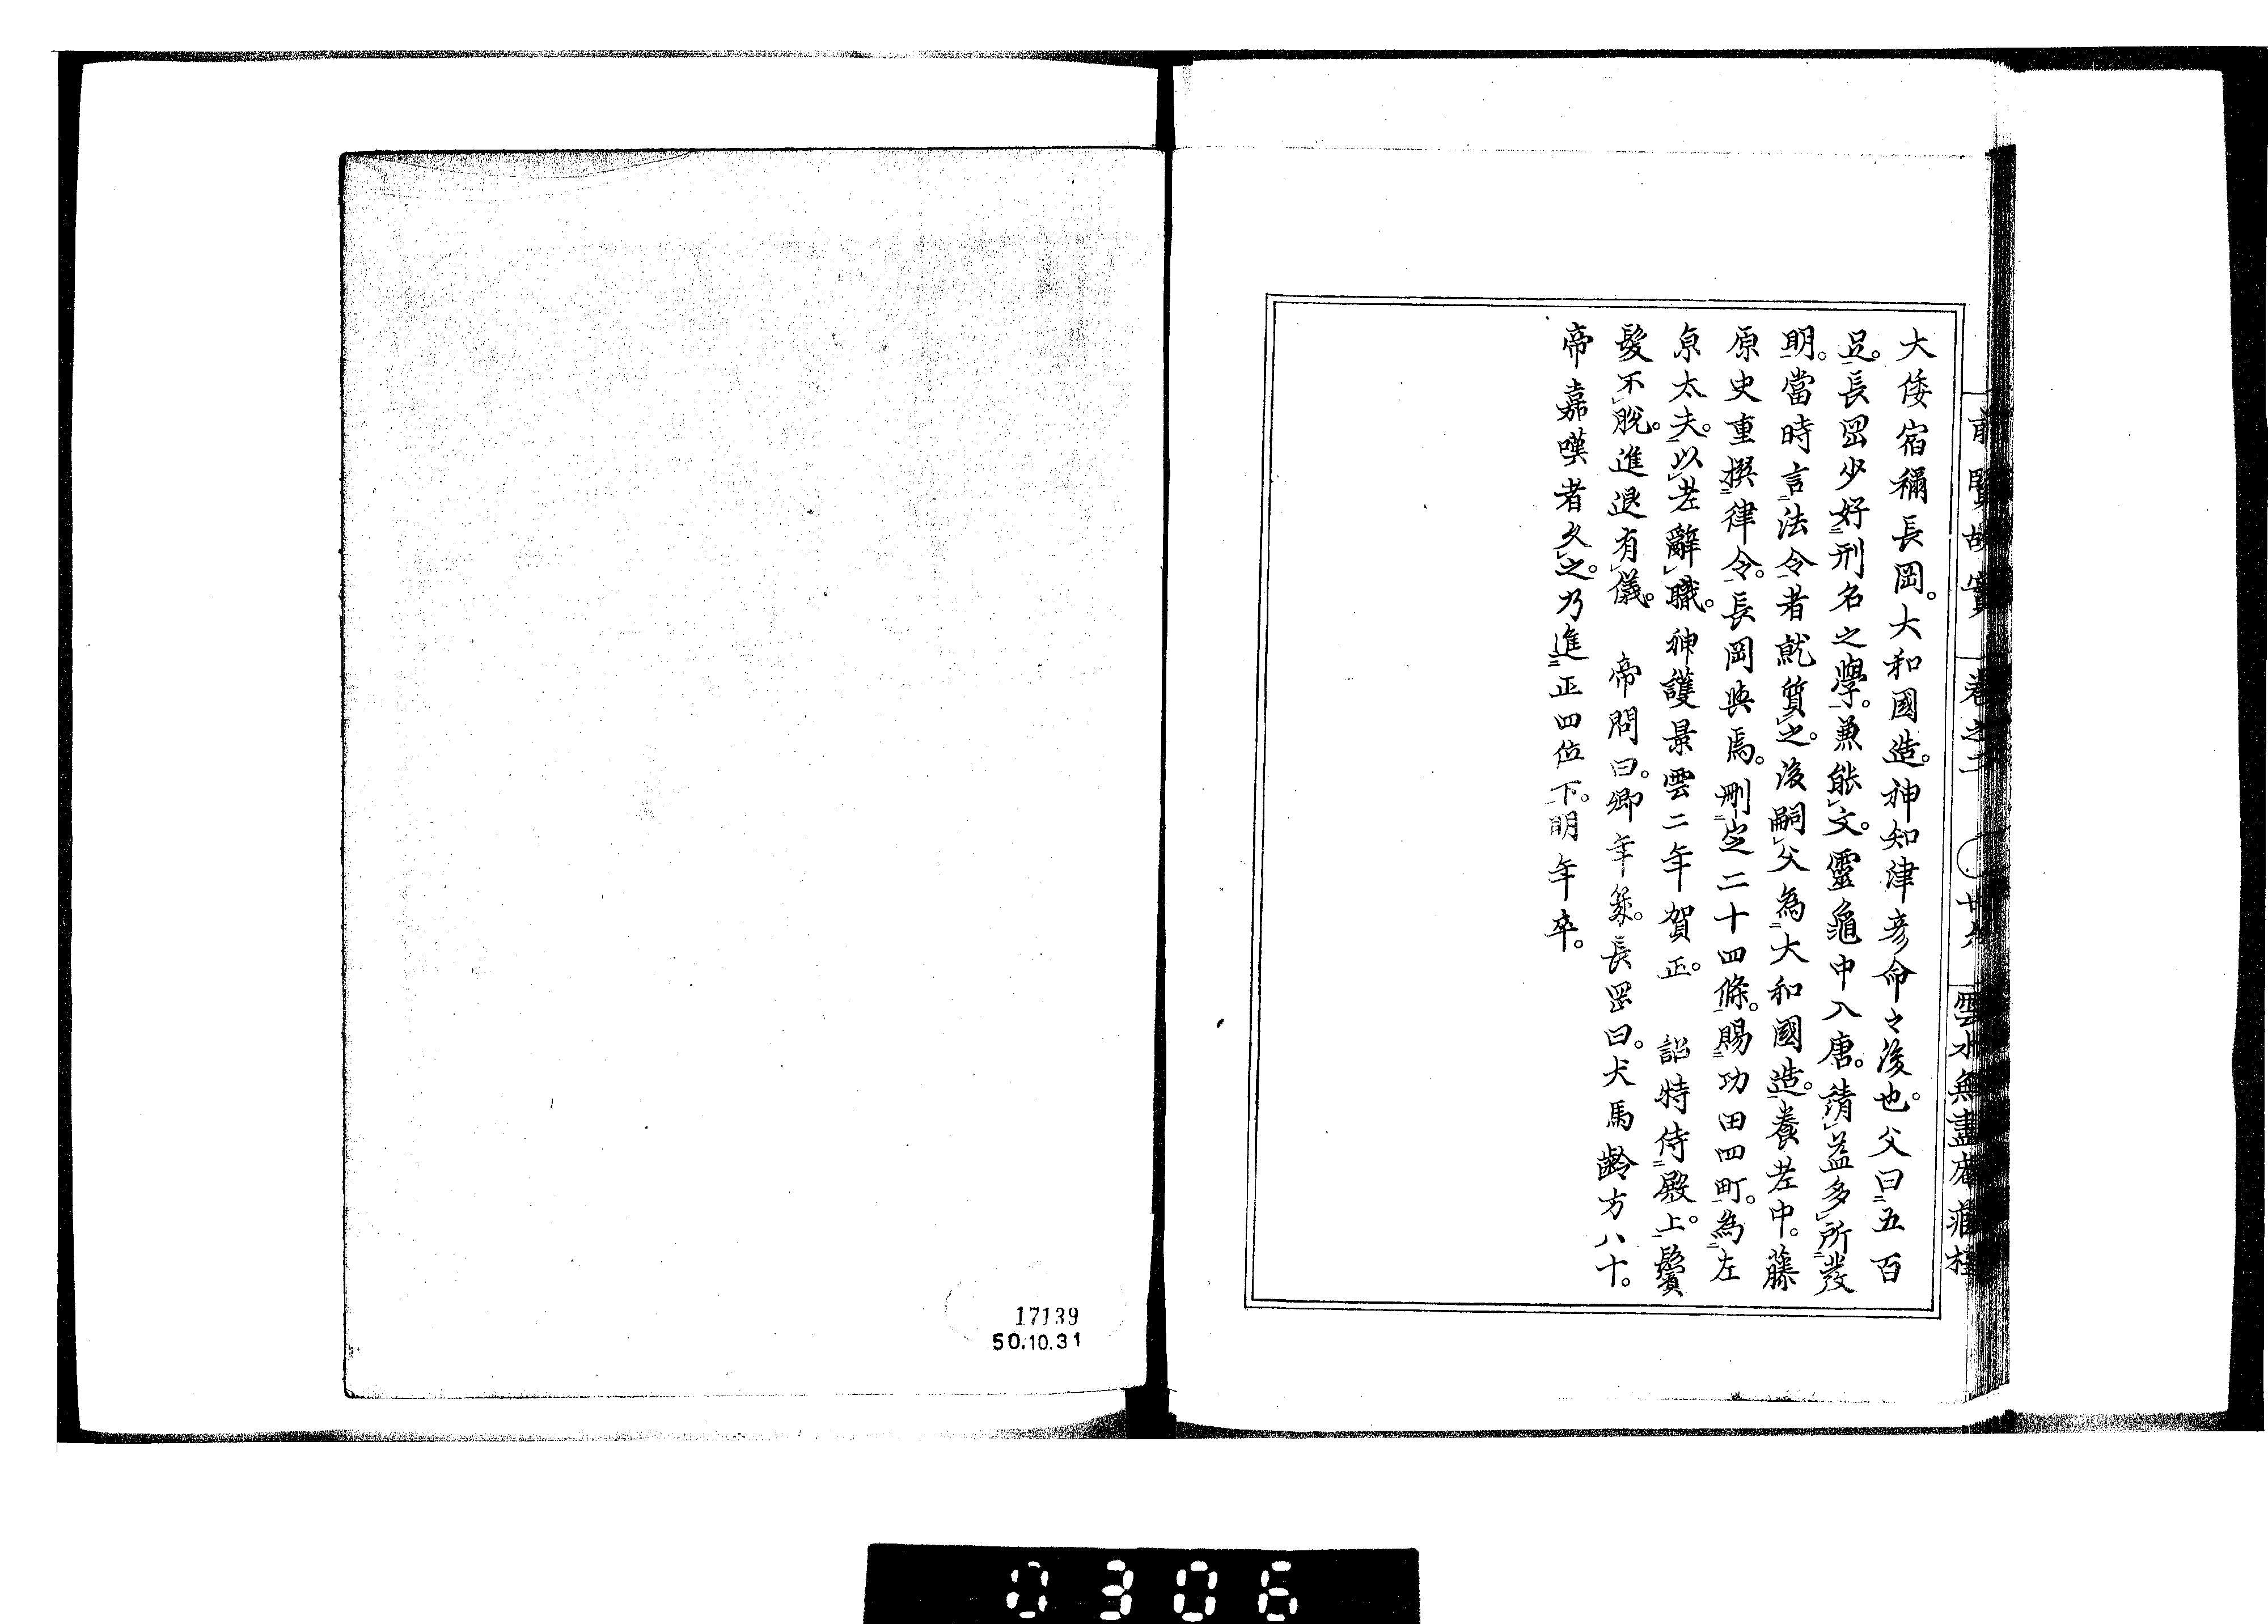 大倭宿禰長岡。大和國造。神知津彦命之後也。父曰五百
足。長罡少好刑名之學。兼能文。靈龜中入唐。請益多所發
明。當時言法令者就質之。後嗣父為大和國造。養老中。藤
原史重撰律令。長岡與焉。刪定二十四條。賜功田四町。為左
京太夫。以老辭職。神護景雲二年賀正。 詔特侍殿上。鬢
髮不脫。進退有儀。 帝問曰。卿年幾。長罡曰。犬馬齡方八十。
帝嘉嘆者久之。乃進正四位下。明年卒。
前賢故實 卷之二 廿六 雲水無盡庵
17139
50.10.31
0306